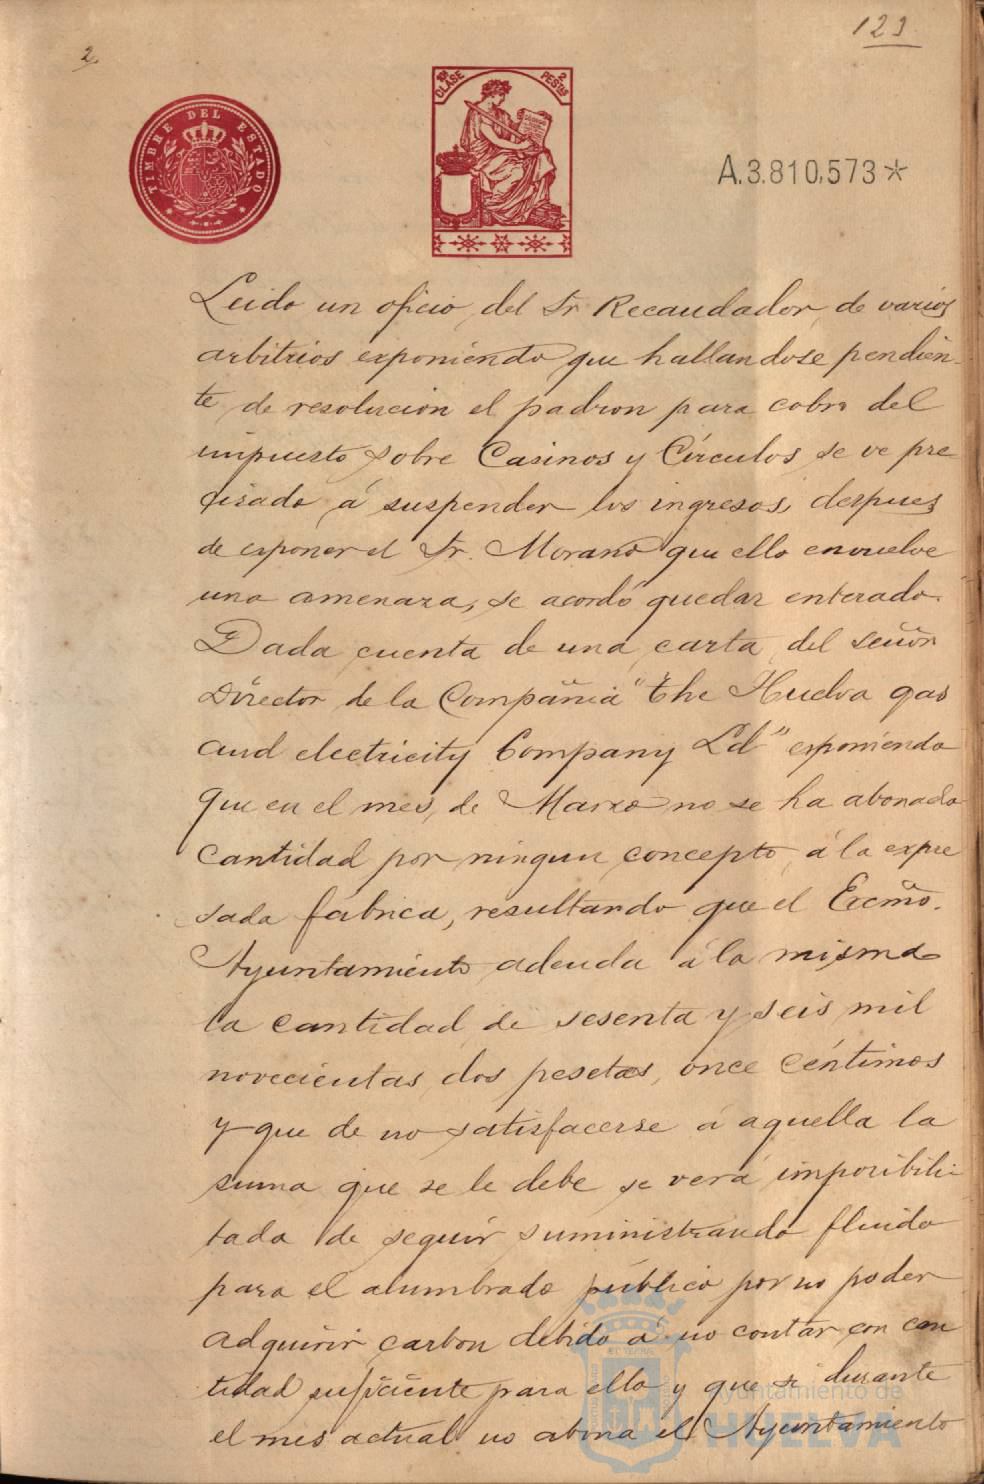 123
2
TIMBRE DEL ESTADO
10ª CLASE 2 PESTAS
A.3.810,573*
Leido un oficio del Sr Recaudador de varios
arbitrios exponiendo que hallandose pendien-
te de resolucion el padron para cobro del
impuesto sobre Casinos y Círculos se ve pre
cisado á suspender los ingresos, despues
de esponer el Sr. Morano que ello envuelve
una amenaza, se acordó quedar enterado.
Dada cuenta de una carta del señor
Director de la Compañia "The Huelva gas
and electricity Company Ld" esponiendo
que en el mes de Marzo no se ha abonado
cantidad por ningun concepto á la expre
sada fábrica, resultando que el Excmo.
Ayuntamiento adeuda á la misma
la cantidad de sesenta y seis mil
novecientas dos pesetas, once céntimos
y que de no satisfacerse á aquella la
suma que se le debe se verá imposibili-
tada de seguir suministrando fluido
para el alumbrado público por no poder
adquirir carbon debido á no contar con can
tidad suficiente para ello y que si durante
el mes actual no abona el Ayuntamiento
Ayuntamiento de
HUELVA